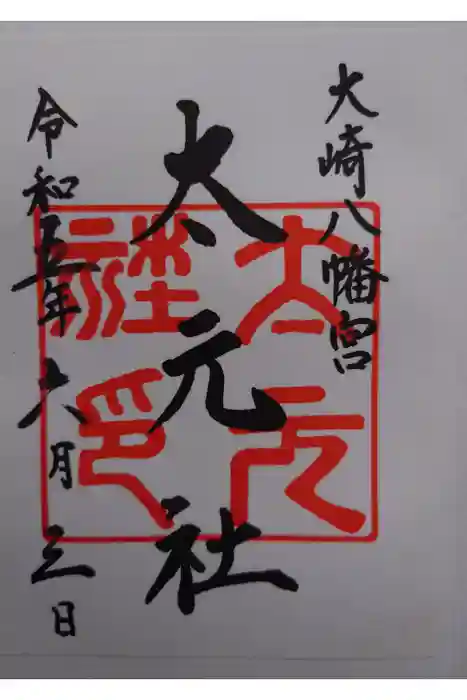 大崎八幡宮
太元社
令和五年六月三日
太元
社印